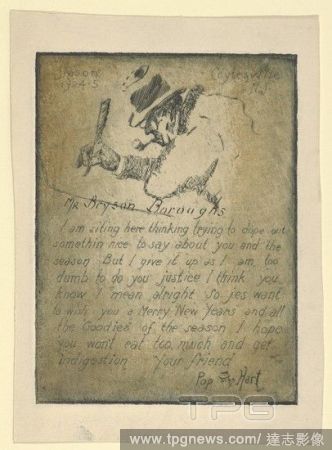 Season
1924-5
Coytesville
N.J.
Mr Bryson Boroughs
I am siting here thinking trying to dope out
somethin nice to say about you and the
season But I give it up as I am too
dumb to do you justice I think you
know I mean alright So jes want
to wish you a Merry New Years and all
the Goodies of the season I hope
you wont eat too much and get
indigestion Your friend
Pop Hart
TPG
www.tpgnews.com/達志影像